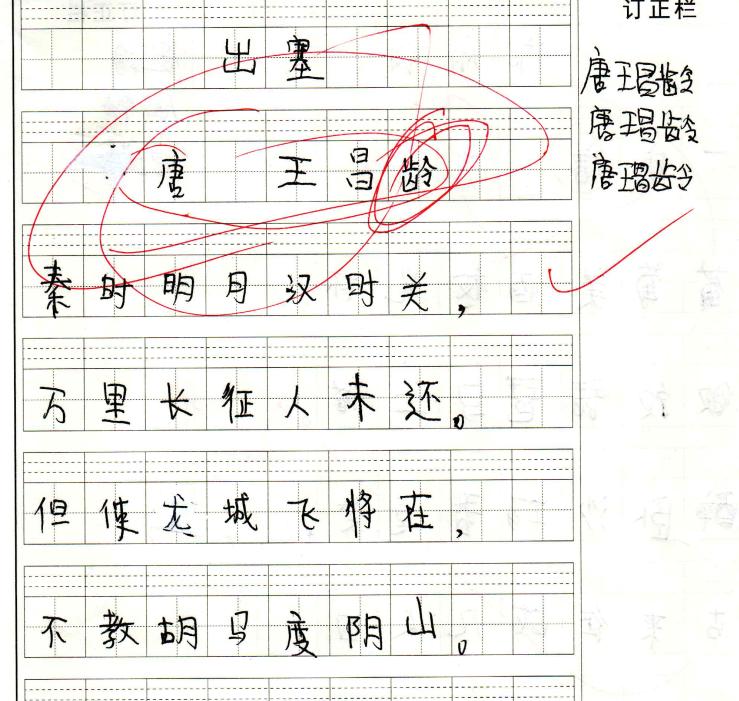 订正栏
出塞
唐 王昌龄
唐王昌龄
唐王昌龄
唐王昌龄
秦时明月汉时关，
万里长征人未还。
但使龙城飞将在，
不教胡马度阴山。